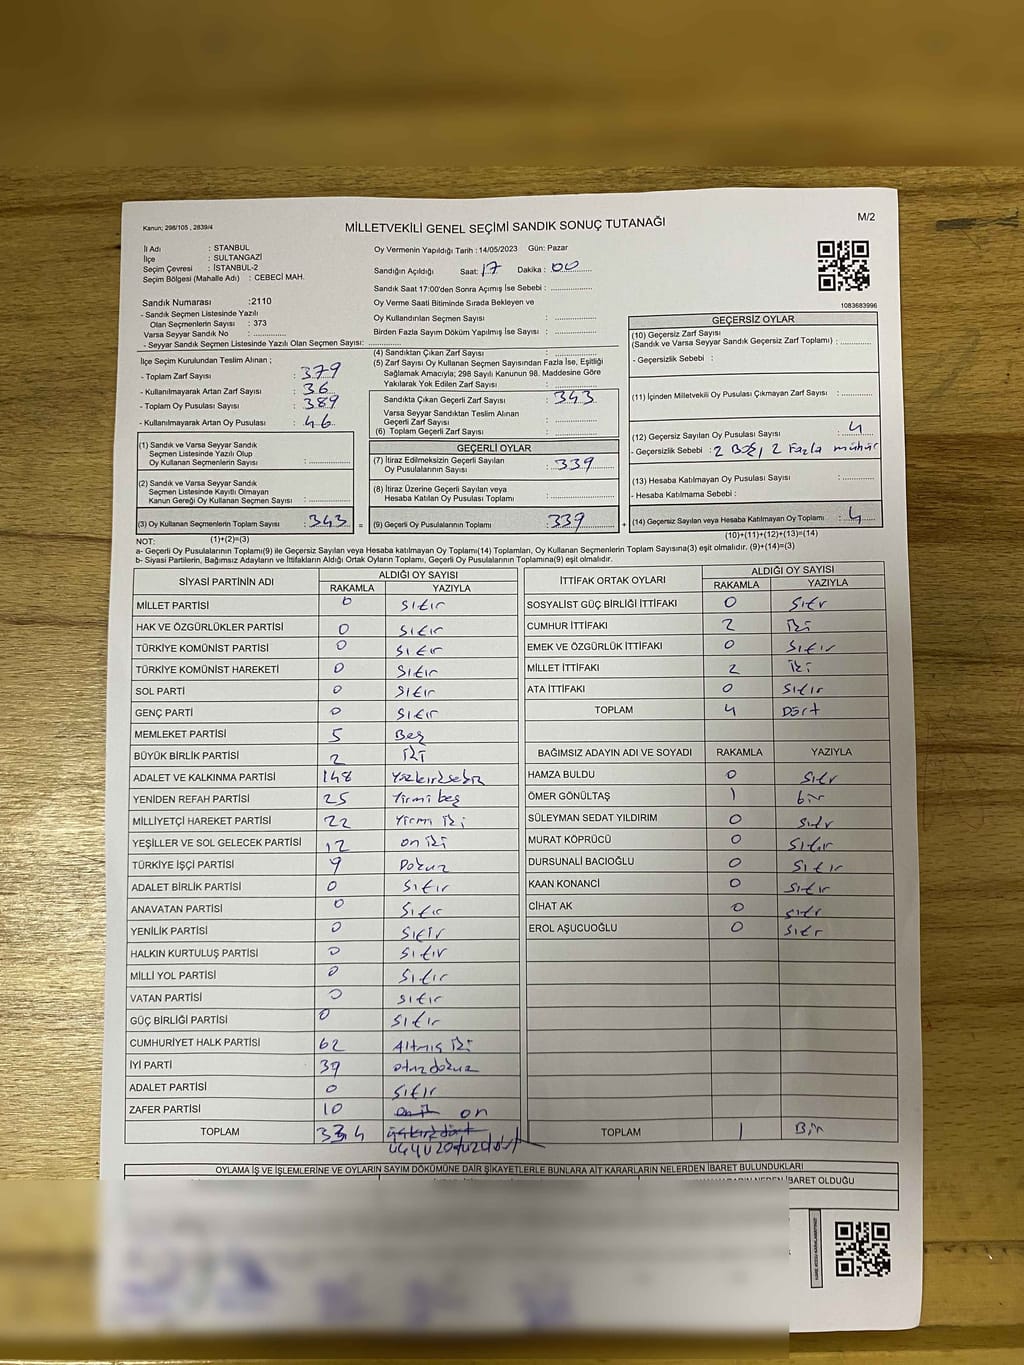 Kanun; 298/105 , 2839/4
MİLLETVEKİLİ GENEL SEÇİMİ SANDIK SONUÇ TUTANAĞI
M/2
İl Adı : STANBUL
İlçe : SULTANGAZİ
Seçim Çevresi : İSTANBUL-2
Seçim Bölgesi (Mahalle Adı) : CEBECİ MAH.
Sandık Numarası :2110
- Sandık Seçmen Listesinde Yazılı
Olan Seçmenlerin Sayısı : 373
Varsa Seyyar Sandık No :
- Seyyar Sandık Seçmen Listesinde Yazılı Olan Seçmen Sayısı:
Oy Vermenin Yapıldığı Tarih : 14/05/2023 Gün: Pazar
Sandığın Açıldığı Saat: 17 Dakika : 00
Sandık Saat 17:00'den Sonra Açımış İse Sebebi :
Oy Verme Saati Bitiminde Sırada Bekleyen ve
Oy Kullandırılan Seçmen Sayısı :
Birden Fazla Sayım Döküm Yapılmış İse Sayısı :
1083683996
İlçe Seçim Kurulundan Teslim Alınan ;
- Toplam Zarf Sayısı : 379
- Kullanılmayarak Artan Zarf Sayısı : 36
- Toplam Oy Pusulası Sayısı : 389
- Kullanılmayarak Artan Oy Pusulası : 46
(1) Sandık ve Varsa Seyyar Sandık
Seçmen Listesinde Yazılı Olup
Oy Kullanan Seçmenlerin Sayısı :
(2) Sandık ve Varsa Seyyar Sandık
Seçmen Listesinde Kayıtlı Olmayan
Kanun Gereği Oy Kullanan Seçmen Sayısı :
(3) Oy Kullanan Seçmenlerin Toplam Sayısı : 343 =
(4) Sandıktan Çıkan Zarf Sayısı :
(5) Zarf Sayısı Oy Kullanan Seçmen Sayısından Fazla İse, Eşitliği
Sağlamak Amacıyla; 298 Sayılı Kanunun 98. Maddesine Göre
Yakılarak Yok Edilen Zarf Sayısı :
Sandıkta Çıkan Geçerli Zarf Sayısı : 343
Varsa Seyyar Sandıktan Teslim Alınan
Geçerli Zarf Sayısı :
(6) Toplam Geçerli Zarf Sayısı :
GEÇERLİ OYLAR
(7) İtiraz Edilmeksizin Geçerli Sayılan
Oy Pusulalarının Sayısı : 339
(8) İtiraz Üzerine Geçerli Sayılan veya
Hesaba Katılan Oy Pusulası Toplamı :
(9) Geçerli Oy Pusulalarının Toplamı : 339 +
GEÇERSİZ OYLAR
(10) Geçersiz Zarf Sayısı
(Sandık ve Varsa Seyyar Sandık Geçersiz Zarf Toplamı) :
- Geçersizlik Sebebi :
(11) İçinden Milletvekili Oy Pusulası Çıkmayan Zarf Sayısı :
(12) Geçersiz Sayılan Oy Pusulası Sayısı : 4
- Geçersizlik Sebebi : 2 Boş, 2 Fazla mühür
(13) Hesaba Katılmayan Oy Pusulası Sayısı :
- Hesaba Katılmama Sebebi :
(14) Geçersiz Sayılan veya Hesaba Katılmayan Oy Toplamı : 4
NOT: (1)+(2)=(3)
(10)+(11)+(12)+(13)=(14)
a- Geçerli Oy Pusulalarının Toplamı(9) ile Geçersiz Sayılan veya Hesaba katılmayan Oy Toplamı(14) Toplamları, Oy Kullanan Seçmenlerin Toplam Sayısına(3) eşit olmalıdır. (9)+(14)=(3)
b- Siyasi Partilerin, Bağımsız Adayların ve İttifakların Aldığı Ortak Oyların Toplamı, Geçerli Oy Pusulalarının Toplamına(9) eşit olmalıdır.
SİYASİ PARTİNİN ADI ALDIĞI OY SAYISI
RAKAMLA YAZIYLA
MİLLET PARTİSİ 0 Sıfır
HAK VE ÖZGÜRLÜKLER PARTİSİ 0 Sıfır
TÜRKİYE KOMÜNİST PARTİSİ 0 Sıfır
TÜRKİYE KOMÜNİST HAREKETİ 0 Sıfır
SOL PARTİ 0 Sıfır
GENÇ PARTİ 0 Sıfır
MEMLEKET PARTİSİ 5 Beş
BÜYÜK BİRLİK PARTİSİ 2 iki
ADALET VE KALKINMA PARTİSİ 148
YENİDEN REFAH PARTİSİ 25 Yirmi beş
MİLLİYETÇİ HAREKET PARTİSİ 22 Yirmi iki
YEŞİLLER VE SOL GELECEK PARTİSİ 12 on iki
TÜRKİYE İŞÇİ PARTİSİ 9 Dokuz
ADALET BİRLİK PARTİSİ 0 Sıfır
ANAVATAN PARTİSİ 0 Sıfır
YENİLİK PARTİSİ 0 Sıfır
HALKIN KURTULUŞ PARTİSİ 0 Sıfır
MİLLİ YOL PARTİSİ 0 Sıfır
VATAN PARTİSİ 0 Sıfır
GÜÇ BİRLİĞİ PARTİSİ 0 Sıfır
CUMHURİYET HALK PARTİSİ 62 Altmış iki
İYİ PARTİ 39 otuzdokuz
ADALET PARTİSİ 0 Sıfır
ZAFER PARTİSİ 10 on
TOPLAM 334 üçyüzotuzdört
İTTİFAK ORTAK OYLARI ALDIĞI OY SAYISI
RAKAMLA YAZIYLA
SOSYALİST GÜÇ BİRLİĞİ İTTİFAKI 0 Sıfır
CUMHUR İTTİFAKI 2 iki
EMEK VE ÖZGÜRLÜK İTTİFAKI 0 Sıfır
MİLLET İTTİFAKI 2 iki
ATA İTTİFAKI 0 Sıfır
TOPLAM 4 Dört
BAĞIMSIZ ADAYIN ADI VE SOYADI RAKAMLA YAZIYLA
HAMZA BULDU 0 Sıfır
ÖMER GÖNÜLTAŞ 1 bir
SÜLEYMAN SEDAT YILDIRIM 0 Sıfır
MURAT KÖPRÜCÜ 0 Sıfır
DURSUNALİ BACIOĞLU 0 Sıfır
KAAN KONANCİ 0 Sıfır
CİHAT AK 0 Sıfır
EROL AŞUCUOĞLU 0 Sıfır
TOPLAM 1 Bir
OYLAMA İŞ VE İŞLEMLERİNE VE OYLARIN SAYIM DÖKÜMÜNE DAİR ŞİKAYETLERLE BUNLARA AİT KARARLARIN NELERDEN İBARET BULUNDUKLARI
İBARET OLDUĞU